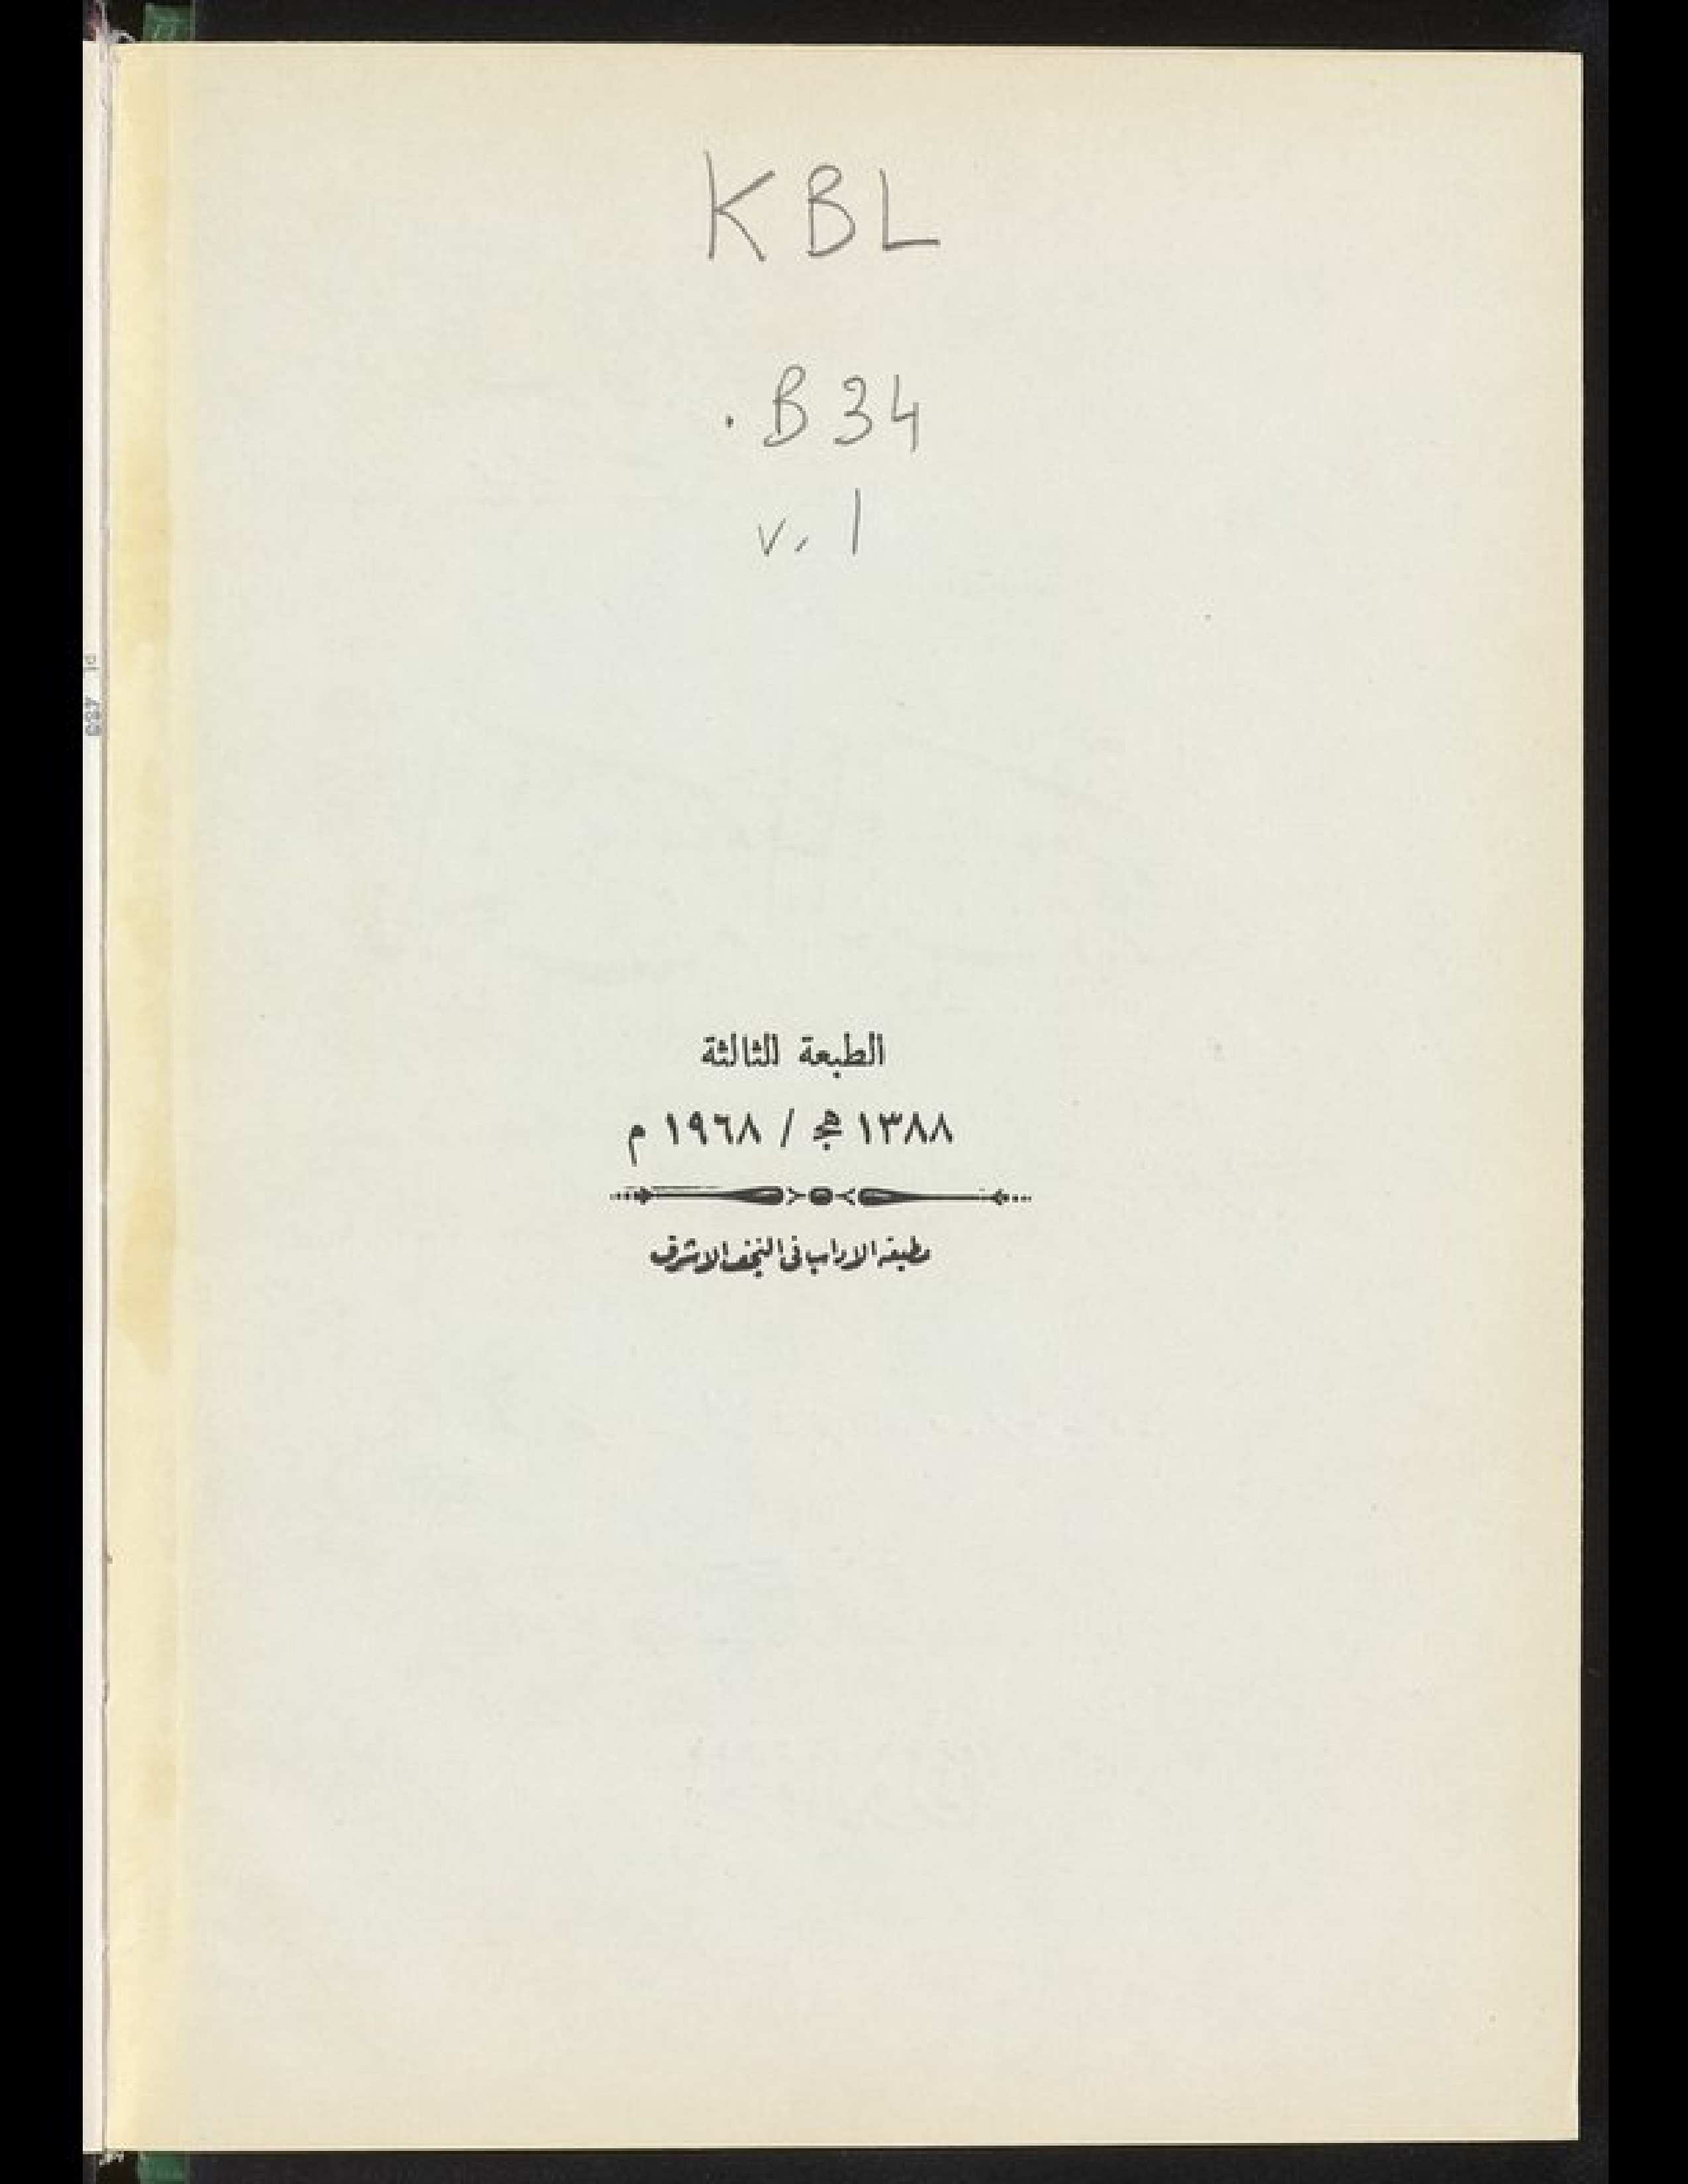 KBL
.B34
v.1
الطبعة الثالثة
١٣٨٨ هج / ١٩٦٨ م
مطبعة الاداب فى النجف الاشرف